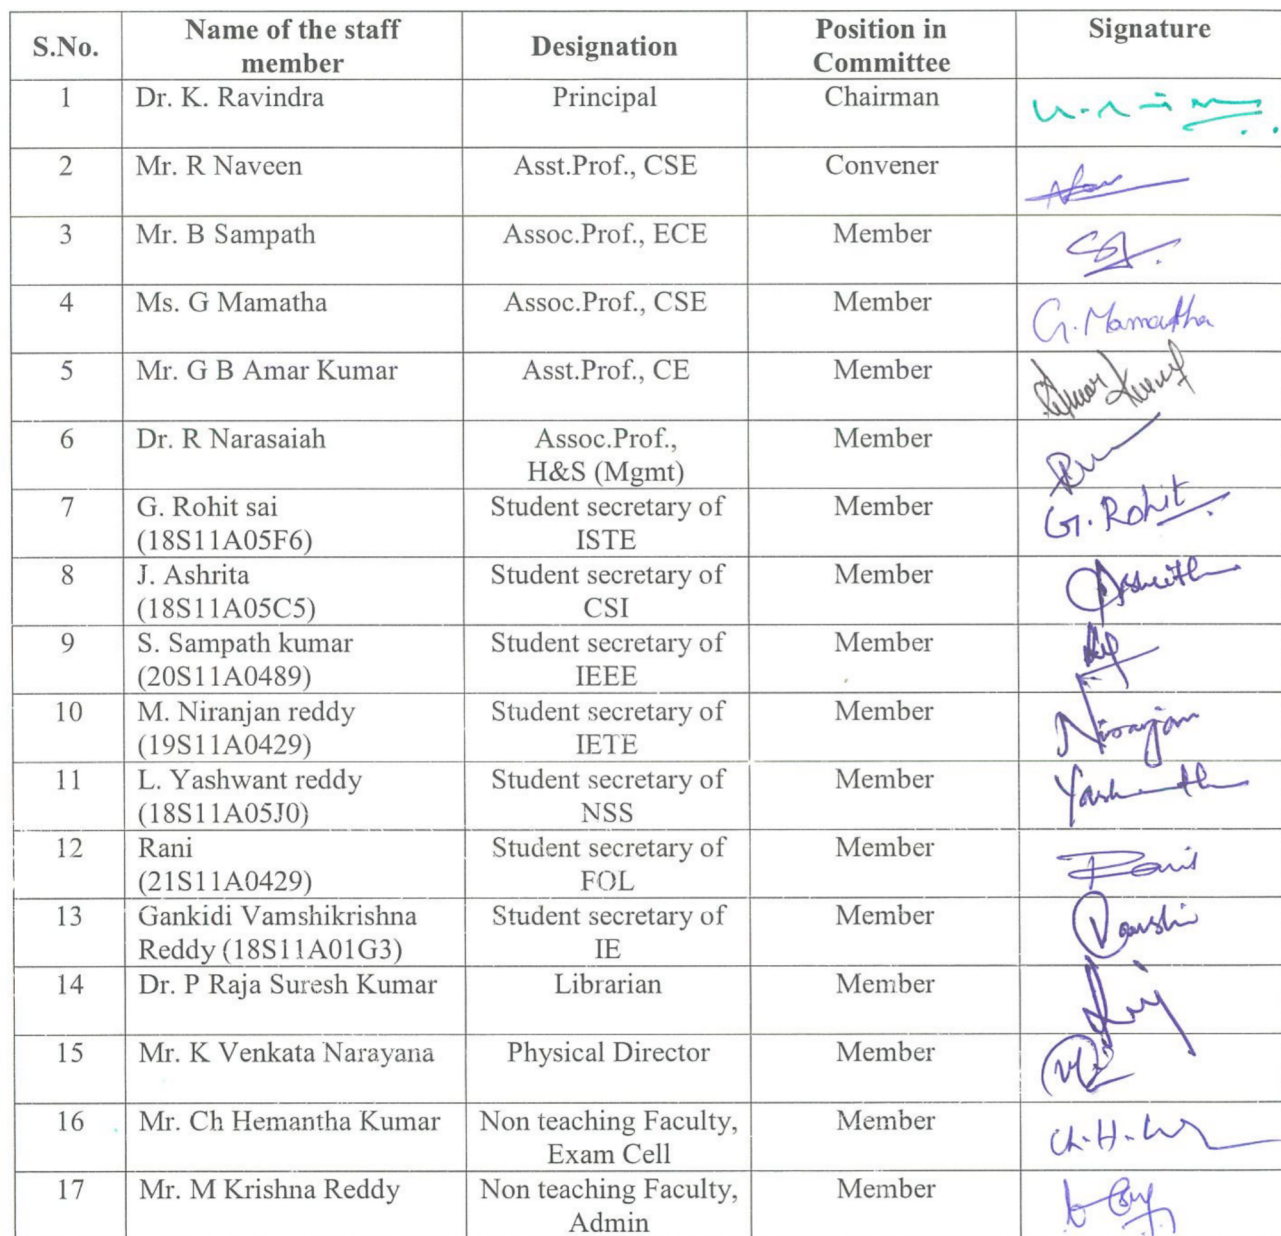 S.No. Name of the staff member Designation Position in Committee Signature
1 Dr. K. Ravindra Principal Chairman
2 Mr. R Naveen Asst.Prof., CSE Convener
3 Mr. B Sampath Assoc.Prof., ECE Member
4 Ms. G Mamatha Assoc.Prof., CSE Member G. Mamatha
5 Mr. G B Amar Kumar Asst.Prof., CE Member
6 Dr. R Narasaiah Assoc.Prof., H&S (Mgmt) Member
7 G. Rohit sai (18S11A05F6) Student secretary of ISTE Member G. Rohit
8 J. Ashrita (18S11A05C5) Student secretary of CSI Member
9 S. Sampath kumar (20S11A0489) Student secretary of IEEE Member
10 M. Niranjan reddy (19S11A0429) Student secretary of IETE Member Niranjan
11 L. Yashwant reddy (18S11A05J0) Student secretary of NSS Member
12 Rani (21S11A0429) Student secretary of FOL Member
13 Gankidi Vamshikrishna Reddy (18S11A01G3) Student secretary of IE Member Vamshi
14 Dr. P Raja Suresh Kumar Librarian Member
15 Mr. K Venkata Narayana Physical Director Member
16 Mr. Ch Hemantha Kumar Non teaching Faculty, Exam Cell Member
17 Mr. M Krishna Reddy Non teaching Faculty, Admin Member